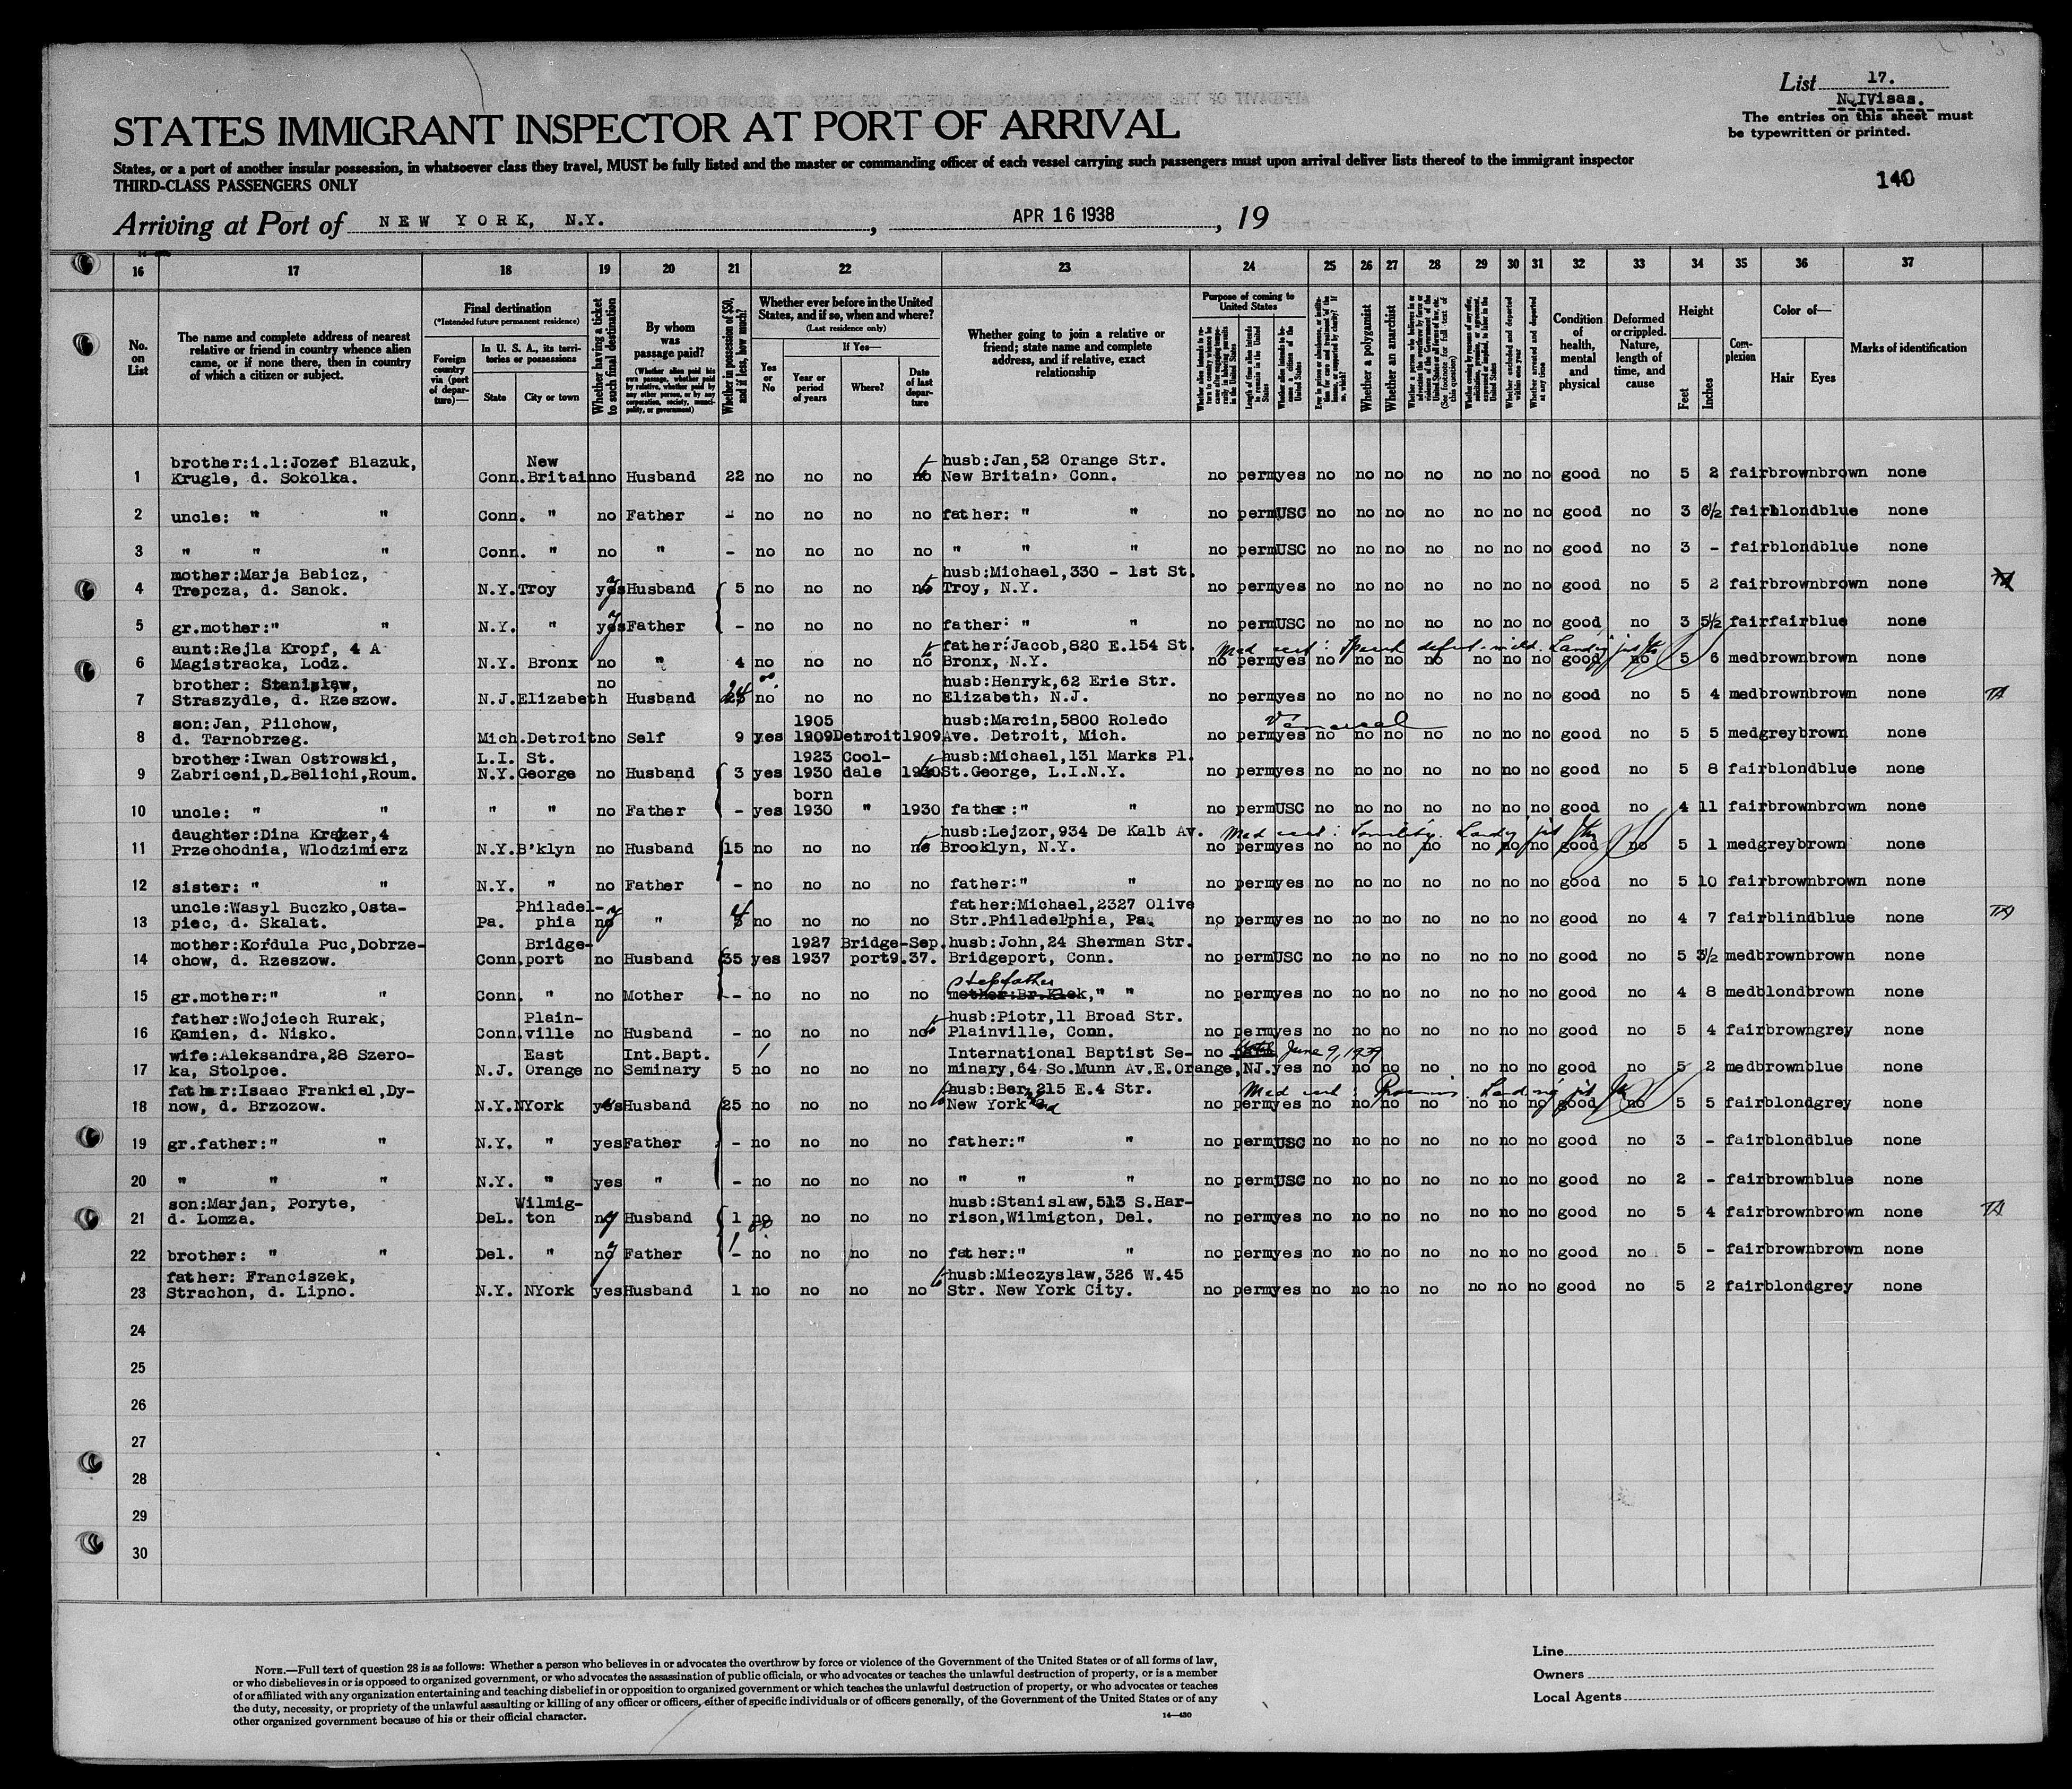 List 17.
NQIVisas.
The entries on this sheet must
be typewritten or printed.
140
STATES IMMIGRANT INSPECTOR AT PORT OF ARRIVAL
States, or a port of another insular possession, in whatsoever class they travel, MUST be fully listed and the master or commanding officer of each vessel carrying such passengers must upon arrival deliver lists thereof to the immigrant inspector
THIRD-CLASS PASSENGERS ONLY
Arriving at Port of NEW YORK, N.Y. , APR 16 1938 , 19
16 17 18 19 20 21 22 23 24 25 26 27 28 29 30 31 32 33 34 35 36 37
No. on List
The name and complete address of nearest relative or friend in country whence alien came, or if none there, then in country of which a citizen or subject.
Final destination
(*Intended future permanent residence)
Foreign country via (port of departure)—
In U. S. A., its territories or possessions
State City or town
Whether having a ticket to such final destination
By whom was passage paid?
(Whether alien paid his own passage, whether paid by relative, whether paid by any other person, or by any corporation, society, municipality, or government)
Whether in possession of $50, and if less, how much?
Whether ever before in the United States, and if so, when and where?
(Last residence only)
Yes or No
If Yes—
Year or period of years Where? Date of last departure
Whether going to join a relative or friend; state name and complete address, and if relative, exact relationship
Purpose of coming to United States
Whether a polygamist
Whether an anarchist
Condition of health, mental and physical
Deformed or crippled. Nature, length of time, and cause
Height
Feet Inches
Complexion
Color of—
Hair Eyes
Marks of identification
1 brother:i.l:Jozef Blazuk, Krugle, d. Sokolka. Conn. New Britain no Husband 22 no no no no husb:Jan,52 Orange Str. New Britain, Conn. no perm yes no no no no no no no good no 5 2 fair brown brown none
2 uncle: " " Conn. " no Father - no no no no father: " " no perm USC no no no no no no no good no 3 6½ fair blond blue none
3 " " " Conn. " no " - no no no no " " " no perm USC no no no no no no no good no 3 - fair blond blue none
4 mother:Marja Babicz, Trepcza, d. Sanok. N.Y. Troy yes Husband 5 no no no no husb:Michael,330 - 1st St. Troy, N.Y. no perm yes no no no no no no no good no 5 2 fair brown brown none
5 gr.mother:" " N.Y. " yes Father - no no no no father: " " no perm USC no no no no no no no good no 3 5½ fair fair blue none
6 aunt:Rejla Kropf, 4 A Magistracka, Lodz. N.Y. Bronx no " 4 no no no no father:Jacob,820 E.154 St. Bronx, N.Y. Med cert: Speech defect - mild. no perm yes no no no no no no no good no 5 6 med brown brown none
7 brother: Stanislaw, Straszydle, d. Rzeszow. N.J. Elizabeth no Husband 24 no no no no husb:Henryk,62 Erie Str. Elizabeth, N.J. no perm yes no no no no no no no good no 5 4 med brown brown none
8 son:Jan, Pilchow, d. Tarnobrzeg. Mich. Detroit no Self 9 yes 1905 1909 Detroit 1909 husb:Marcin,5800 Roledo Ave. Detroit, Mich. no perm yes no no no no no no no good no 5 5 med grey brown none
9 brother:Iwan Ostrowski, Zabriceni,D.Belichi,Roum. L.I. N.Y. St. George no Husband 3 yes 1923 1930 Cool-dale 1930 husb:Michael,131 Marks Pl. St.George, L.I.N.Y. no perm yes no no no no no no no good no 5 8 fair blond blue none
10 uncle: " " " " no Father - yes born 1930 " 1930 father:" " no perm USC no no no no no no no good no 4 11 fair brown brown none
11 daughter:Dina Krajzer,4 Przechodnia, Wlodzimierz N.Y. B'klyn no Husband 15 no no no no husb:Lejzor,934 De Kalb Av. Brooklyn, N.Y. Med cert: Senility. no perm yes no no no no no no no good no 5 1 med grey brown none
12 sister: " " N.Y. " no Father - no no no no father:" " no perm yes no no no no no no no good no 5 10 fair brown brown none
13 uncle:Wasyl Buczko,Osta-piec, d. Skalat. Pa. Philadel-phia no " 4 no no no no father:Michael,2327 Olive Str.Philadelphia, Pa. no perm yes no no no no no no no good no 4 7 fair blind blue none
14 mother:Kordula Puc,Dobrze-chow, d. Rzeszow. Conn. Bridge-port no Husband 35 yes 1927 1937 Bridge-port Sep. 9.37. husb:John,24 Sherman Str. Bridgeport, Conn. no perm USC no no no no no no no good no 5 3½ med brown brown none
15 gr.mother:" " Conn. " no Mother - no no no no stepfather mother:Br.Klek," " no perm yes no no no no no no no good no 4 8 med blond brown none
16 father:Wojciech Rurak, Kamien, d. Nisko. Conn. Plain-ville no Husband - no no no no husb:Piotr,11 Broad Str. Plainville, Conn. no perm yes no no no no no no no good no 5 4 fair brown grey none
17 wife:Aleksandra,28 Szero-ka, Stolpce. N.J. East Orange no Int.Bapt. Seminary 5 no no no no International Baptist Se-minary,64 So.Munn Av.E.Orange,NJ. no June 9, 1939 yes no no no no no no no good no 5 2 med brown blue none
18 father:Isaac Frankiel,Dy-now, d. Brzozow. N.Y. NYork yes Husband 25 no no no no husb:Ber, 215 E.4 Str. New York Med cert: no perm yes no no no no no no no good no 5 5 fair blond grey none
19 gr.father:" " N.Y. " yes Father - no no no no father:" " no perm USC no no no no no no no good no 3 - fair blond blue none
20 " " " N.Y. " yes " - no no no no " " " no perm USC no no no no no no no good no 2 - fair brown blue none
21 son:Marjan, Poryte, d. Lomza. DeL. Wilmig-ton Husband 1 no no no no husb:Stanislaw,513 S.Har-rison,Wilmigton, Del. no perm yes no no no no no no no good no 5 4 fair brown brown none
22 brother: " " Del. " no Father - no no no no father:" " no perm yes no no no no no no no good no 5 - fair brown brown none
23 father: Franciszek, Strachon, d. Lipno. N.Y. NYork yes Husband 1 no no no no husb:Mieczyslaw,326 W.45 Str. New York City. no perm yes no no no no no no no good no 5 2 fair blond grey none
24
25
26
27
28
29
30
NOTE.—Full text of question 28 is as follows: Whether a person who believes in or advocates the overthrow by force or violence of the Government of the United States or of all forms of law,
or who disbelieves in or is opposed to organized government, or who advocates the assassination of public officials, or who advocates or teaches the unlawful destruction of property, or is a member
of or affiliated with any organization entertaining and teaching disbelief in or opposition to organized government or which teaches the unlawful destruction of property, or who advocates or teaches
the duty, necessity, or propriety of the unlawful assaulting or killing of any officer or officers, either of specific individuals or of officers generally, of the Government of the United States or of any
other organized government because of his or their official character.
14—430
Line
Owners
Local Agents